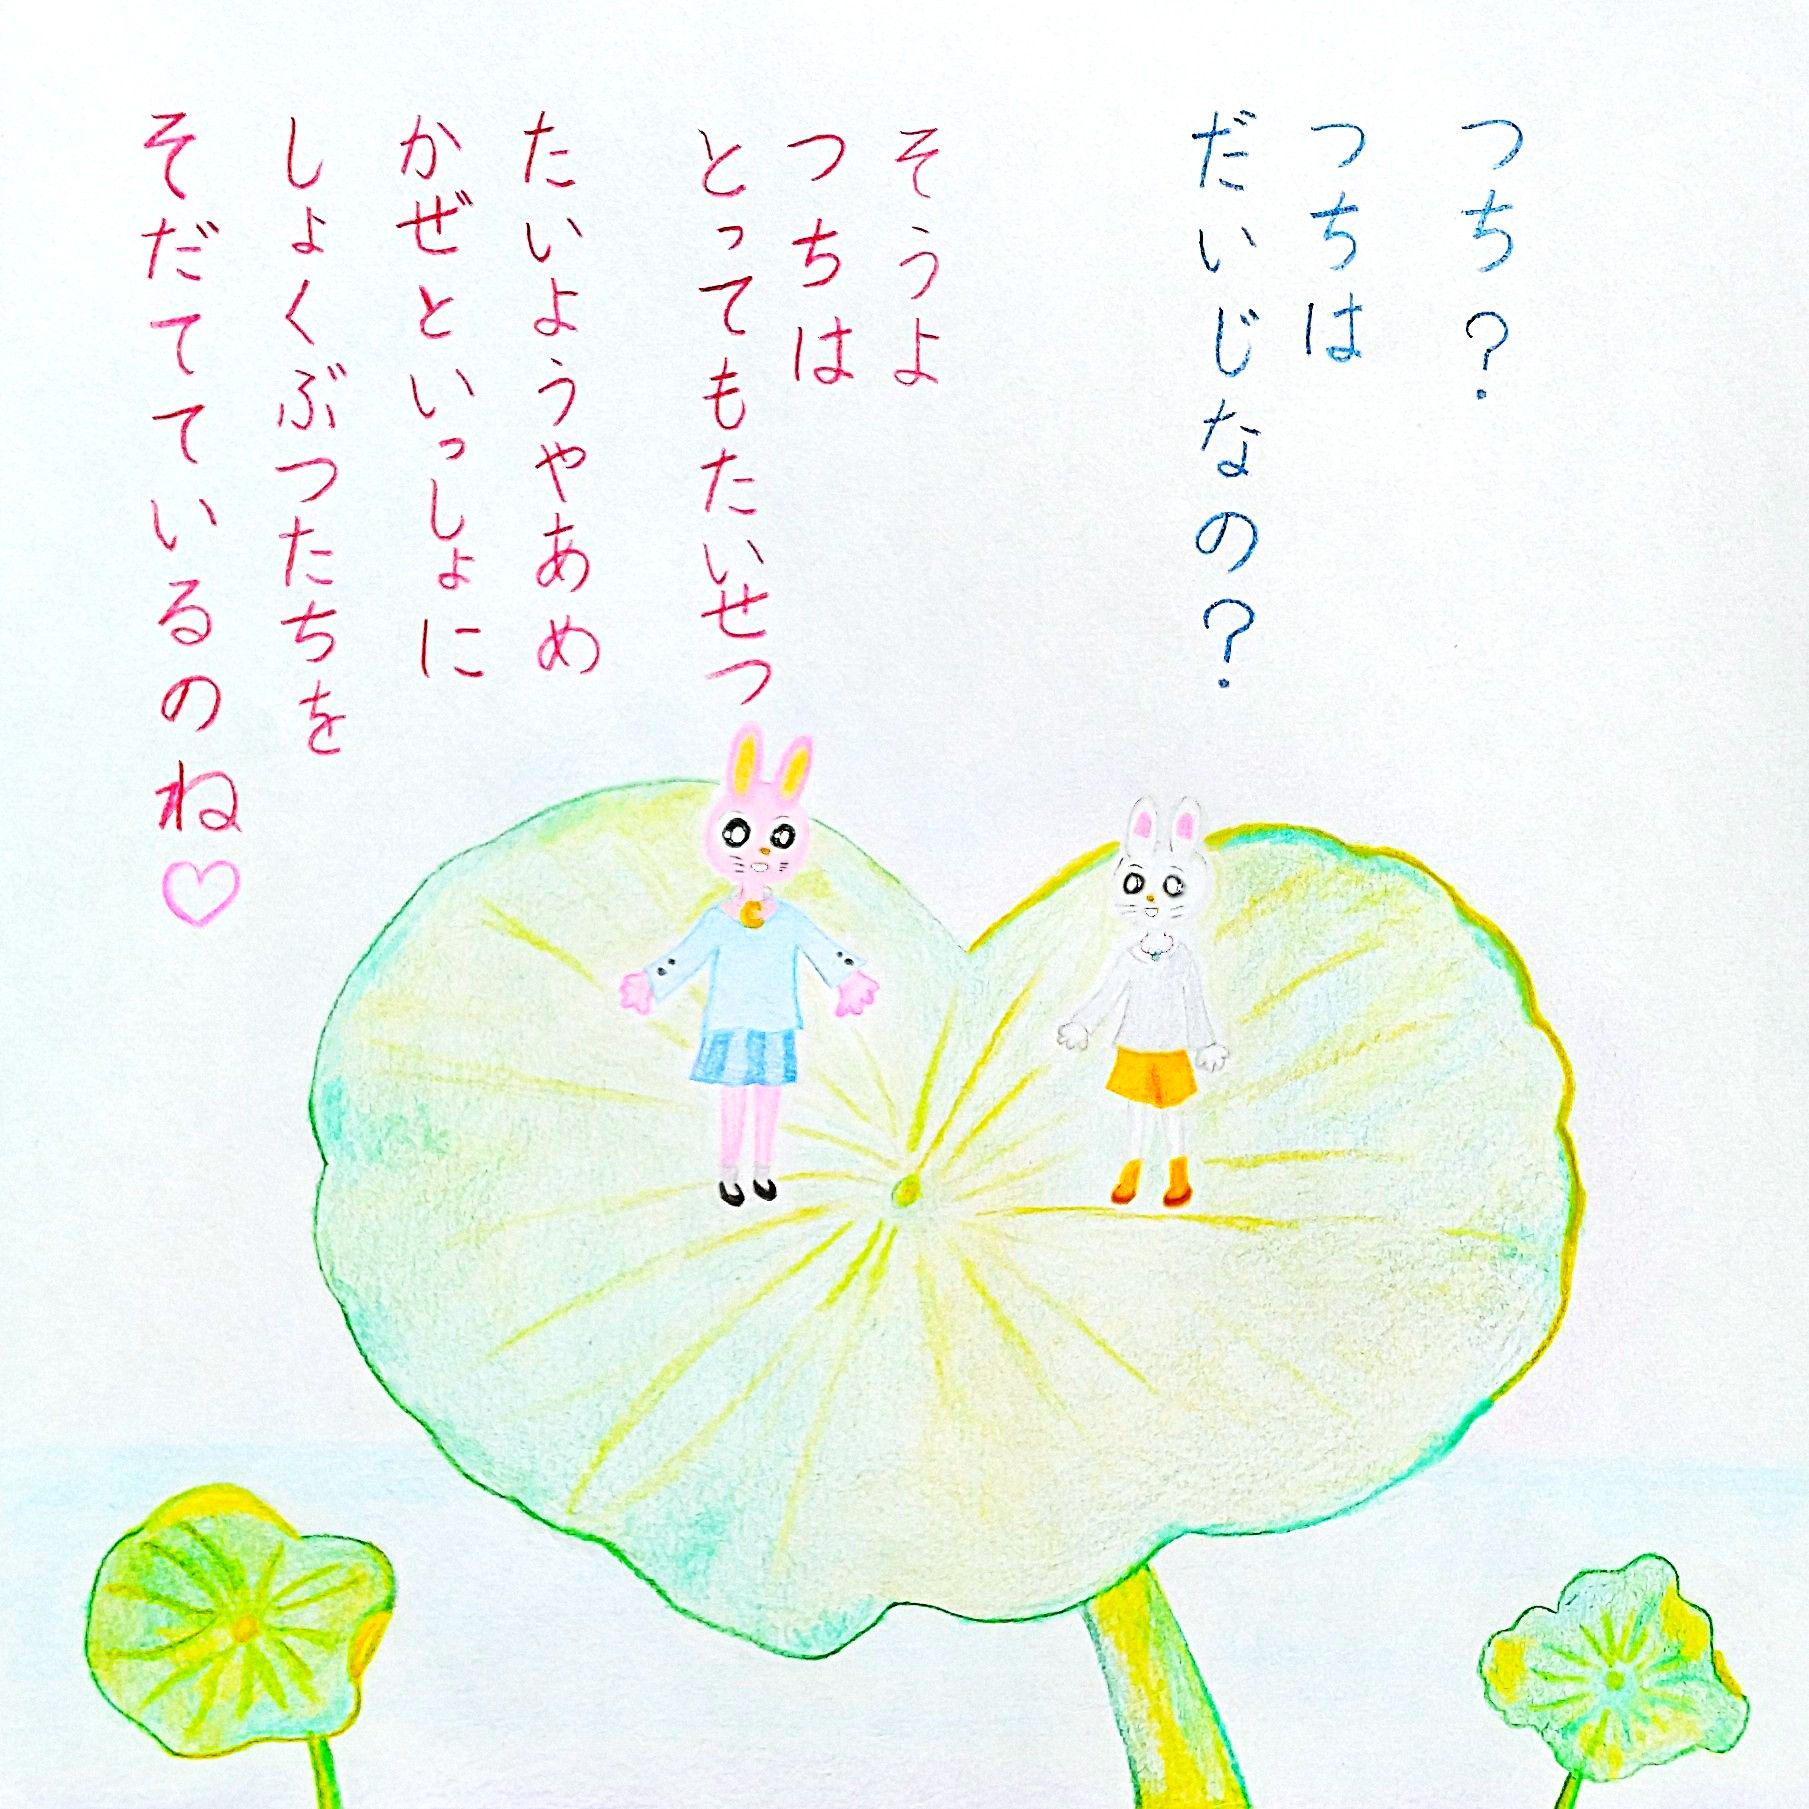 つち?
つちは
だいじなの?
そうよ
つちは
とってもたいせつ
たいようやあめ
かぜといっしょに
しょくぶつたちを
そだてているのね♡